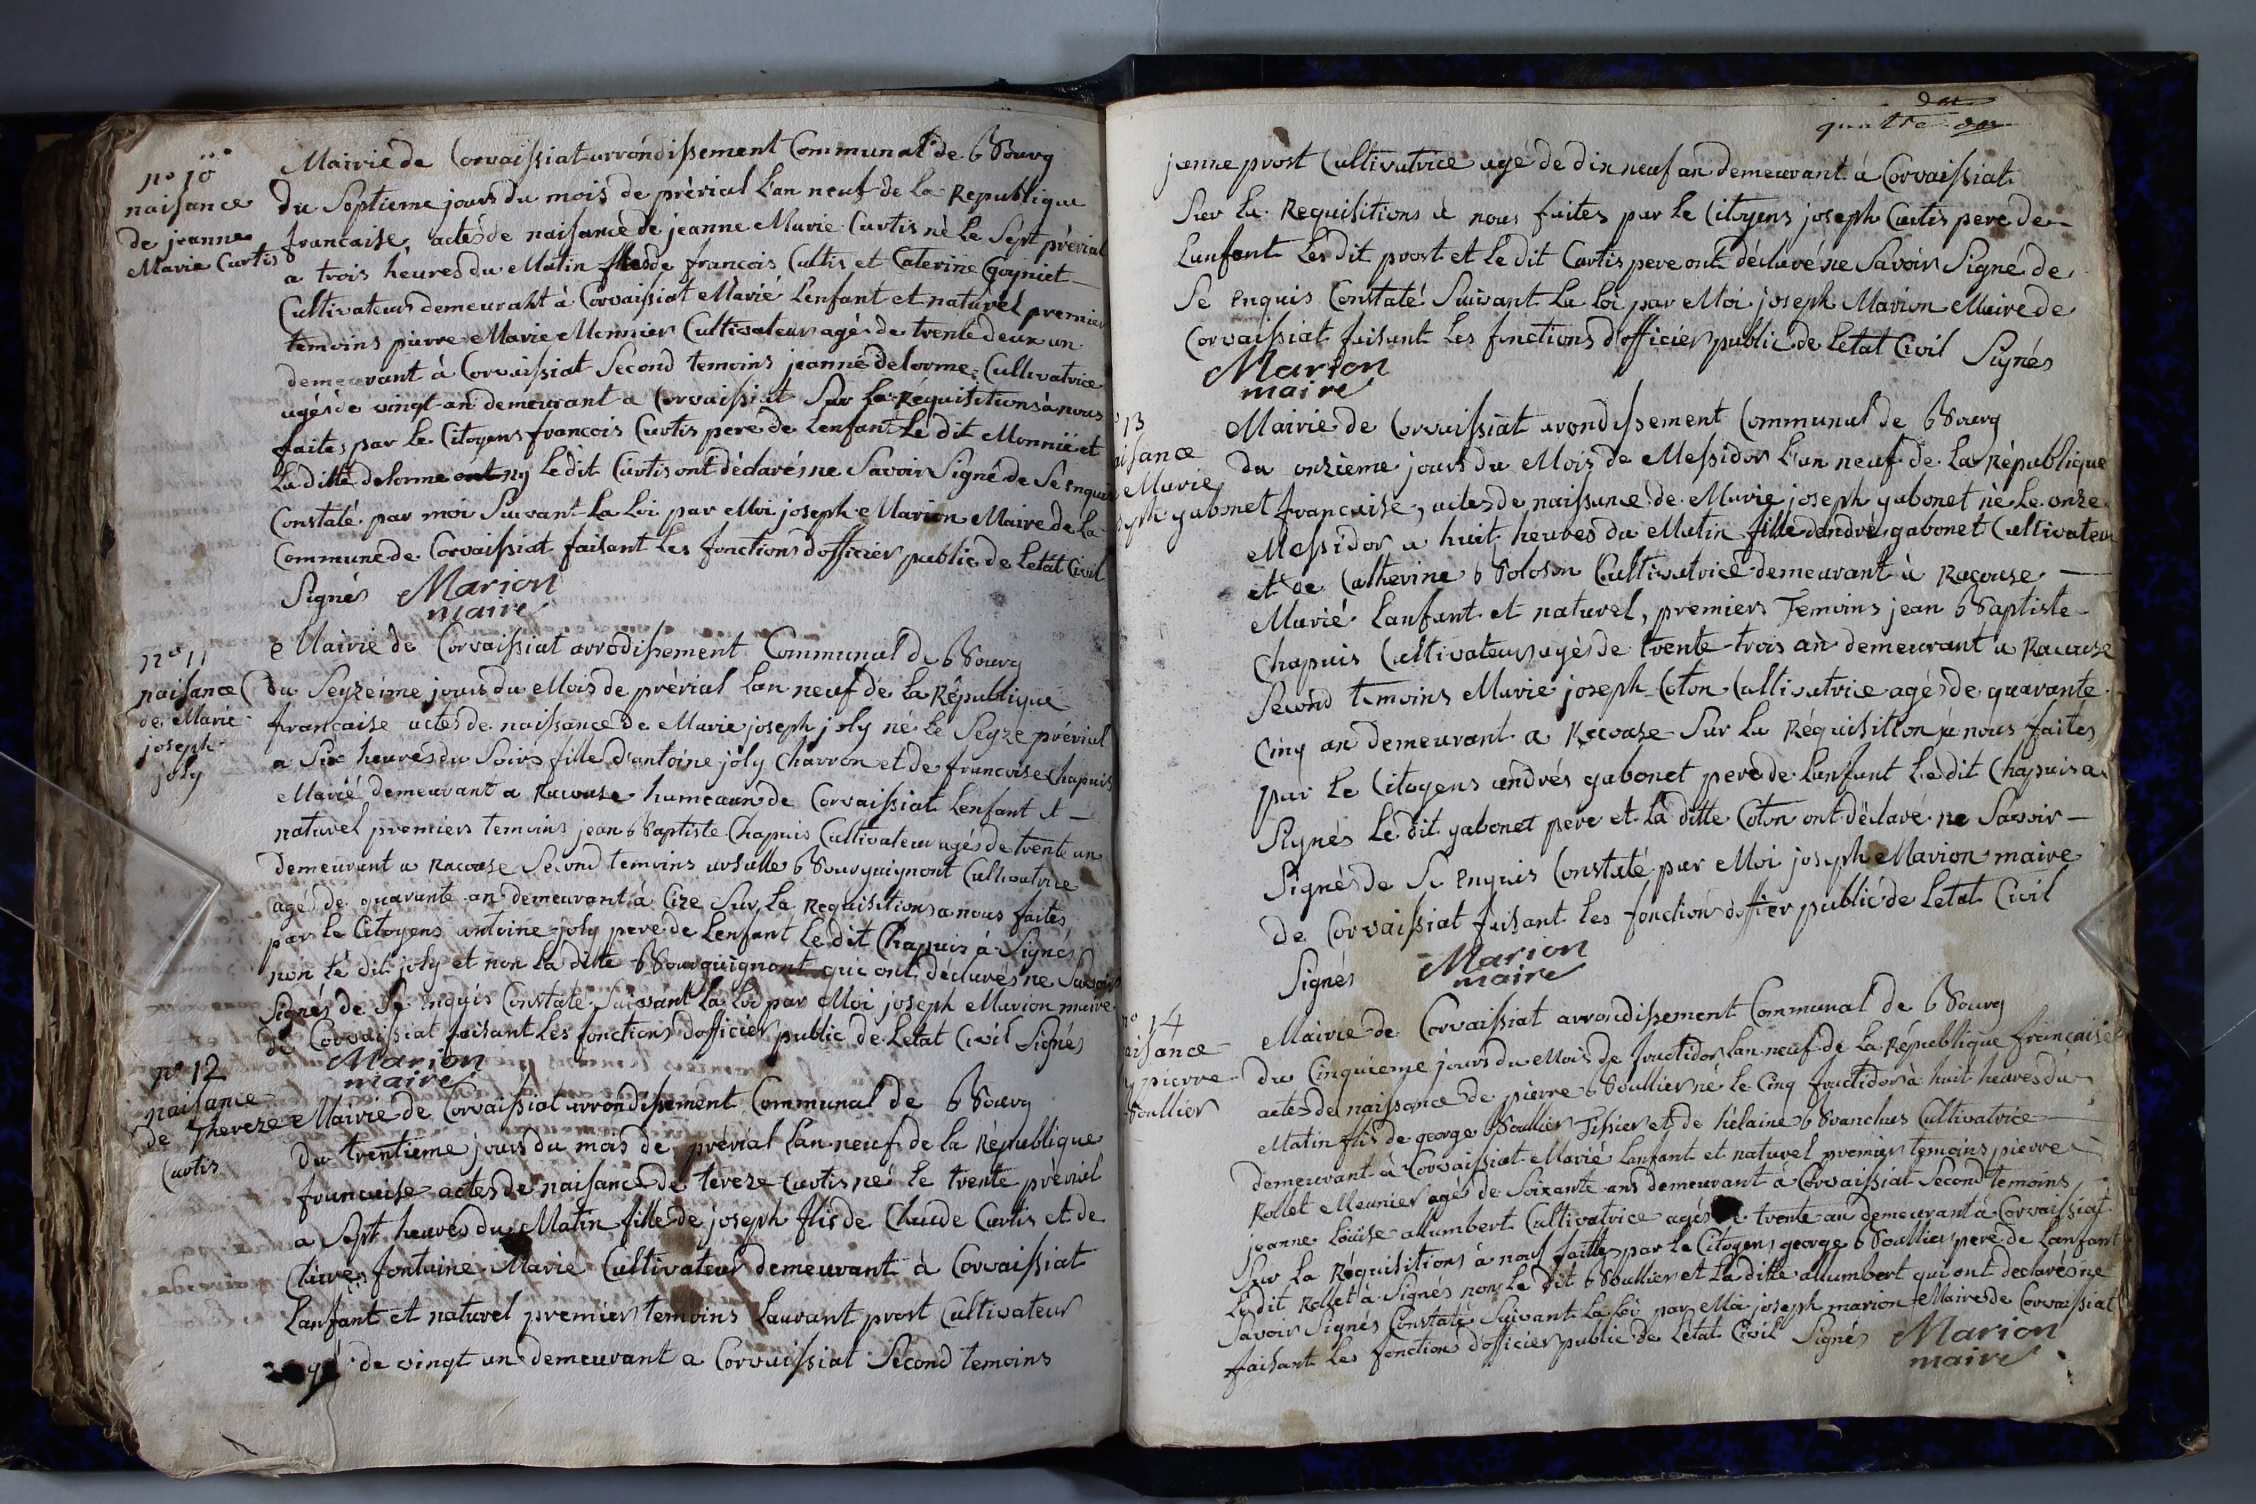 n° 10
naisance
de jeanne
Marie Curtis
Mairie de Corvaissiat arrondissement Communal de Bourg
du Septieme jours du mois de prérial L'an neuf de la Republique
francaise, actes de naisance de jeanne Marie Curtis né Le Sept prérial
a trois héures du Matin filles de francois Cultis et Caterine Goynet
Cultivateurs demeurant à Corvaissiat Marié Lenfant et naturel premier
temoins pierre Marie Monnier Cultivateurs agés de trente deux an
demeurant à Corvaissiat Second temoins jeanne delorme Cultivatrice
agés de vingt an demeurant a Corvaissiat Sur La Réquisitions à nous
faites par Le Citoyens francois Curtis pere de Lenfant Le dit Monnié et
La ditte delorme ont ny Le dit Curtis ont déclarés ne Savoir Signé de Sé enquis
Constaté par moi Suivant La Loi par Moi joseph Marion Maire de La
Commune de Corvaissiat faisant Les fonctions d'officier public de Letat Civil
Signés Marion
maire
n° 11
naisance
de Marie
joseph
joly
Mairie de Corvaissiat arrodissement Communal de Bourg
du Seyzeime jours du Mois de prérial Lan neuf de la République
francaise actes de naissance de Marie joseph joly né Le Seyze prérial
a Six heures du Soirs fille d'antoine joly Charron et de francoise Chapuis
Marié demeurant a Racouse humeaux de Corvaissiat Lenfant et
naturel premiers temoins jean Baptiste Chapuis Cultivateur agés de trente an
demeurant a Racouse Second temoins ursulle Bourguignont Cultivatrice
agés de quarante an demeurant à Cize Sur La Requisitions a nous faites
par Le Citoyens antoine joly pere de Lenfant Le dit Chapuis à Signés
non Lé dit joly et non La ditte Bourguignont qui ont déclarés ne Savoir
Signés de Se enquis Constaté Suivant La Loi par Moi joseph Marion maire
de Corvaissiat faisant Les fonctions d'officier public de Letat Civil Signés
Marion
maire
n° 12
naisance
de Thereze
Curtis
Mairie de Corvaissiat arrondissement Communal de Bourg
du trentieme jours du mas de prérial Lan neuf de la République
francaise actes de naisance de tereze Curtis né le trente prérial
a Sept heures du Matin fille de joseph flis de Claude Curtis et de
Claire fontaine Marié Cultivateur demeurant à Corvaissiat
Lanfant et naturel premiers temoins Laurant prost Cultivateur
agé de vingt un demeurant a Corvaissiat Second temoins
quatre
janne prost Cultivatrice agé de dix neuf an demeurant à Corvaissiat
Sur La Requisitions à nous faites par Le Citoyens joseph Curtis pere de
Lanfant Les dit prost et Le dit Curtis pere ont déclaré ne Savoir Signé de
Se enquis Constaté Suivant La Loi par Moi joseph Marion Maire de
Corvaissiat faisant Les fonctions d'officier public de Letat Civil Signés
Marion
maire
13
aisance
Marie
seph gabonet
Mairie de Corvaissiat arondissement Communal de Bourg
du onzieme jours du Mois de Messidor L'an neuf de La République
francaise, actes de naissance de Marie joseph gabonet né Le onze
Messidor a huit heures du Matin fille d'andré gabonet Cultivateur
et de Catherine Boloson Cultivatrice demeurant à Racouse
Marié Lanfant et naturel, premiers Temoins jean Baptiste
Chapuis Cultivateurs agés de trente-trois an demeurant a Racouse
Second temoins Marie joseph Coton Cultivatrice agés de quarante
Cinq an demeurant a Racouse Sur La Réquisition à nous faites
par Le Citoyens andrés gabonet pere de Lanfant Le dit Chapuis a
Signés Le dit gabonet pere et La ditte Coton ont déclaré ne Savoir
Signés de Se enquis Constaté par Moi joseph Marion maire
de Corvaissiat faisant Les fonctions d'offier public de Letat Civil
Signés Marion
maire
n° 14
aisance
pierre
Boullier
Mairie de Corvaissiat arrondissement Communal de Bourg
du Cinquieme jours du Mois de fructidor Lan neuf de La République francaise
actes de naissance de pierre Boullier né Le Cinq fructidor à huit heures du
Matin flis de george Boullier Tissier et de hélaine Branchus Cultivatrice
demeurant à Corvaissiat Marié Lanfant et naturel premier temoins pierre
Rollet Meunier agés de Soixante ans demeurant à Corvaissiat Second temoins
jeanne Louise allumbert Cultivatrice agés de trente an demeurant à Corvaissiat
Sur La Réquisitions à nous faittes par Le Citoyens george Boullier pere de Lanfant
Le dit Rollet à Signés non Le dit Boullier et La ditte allumbert qui ont declarés ne
Savoir Signés Constaté Suivant La Loi par Moi joseph marion Maire de Corvaissiat
faisant Les fonctions d'officier public de Letat Civil Signés Marion
maire